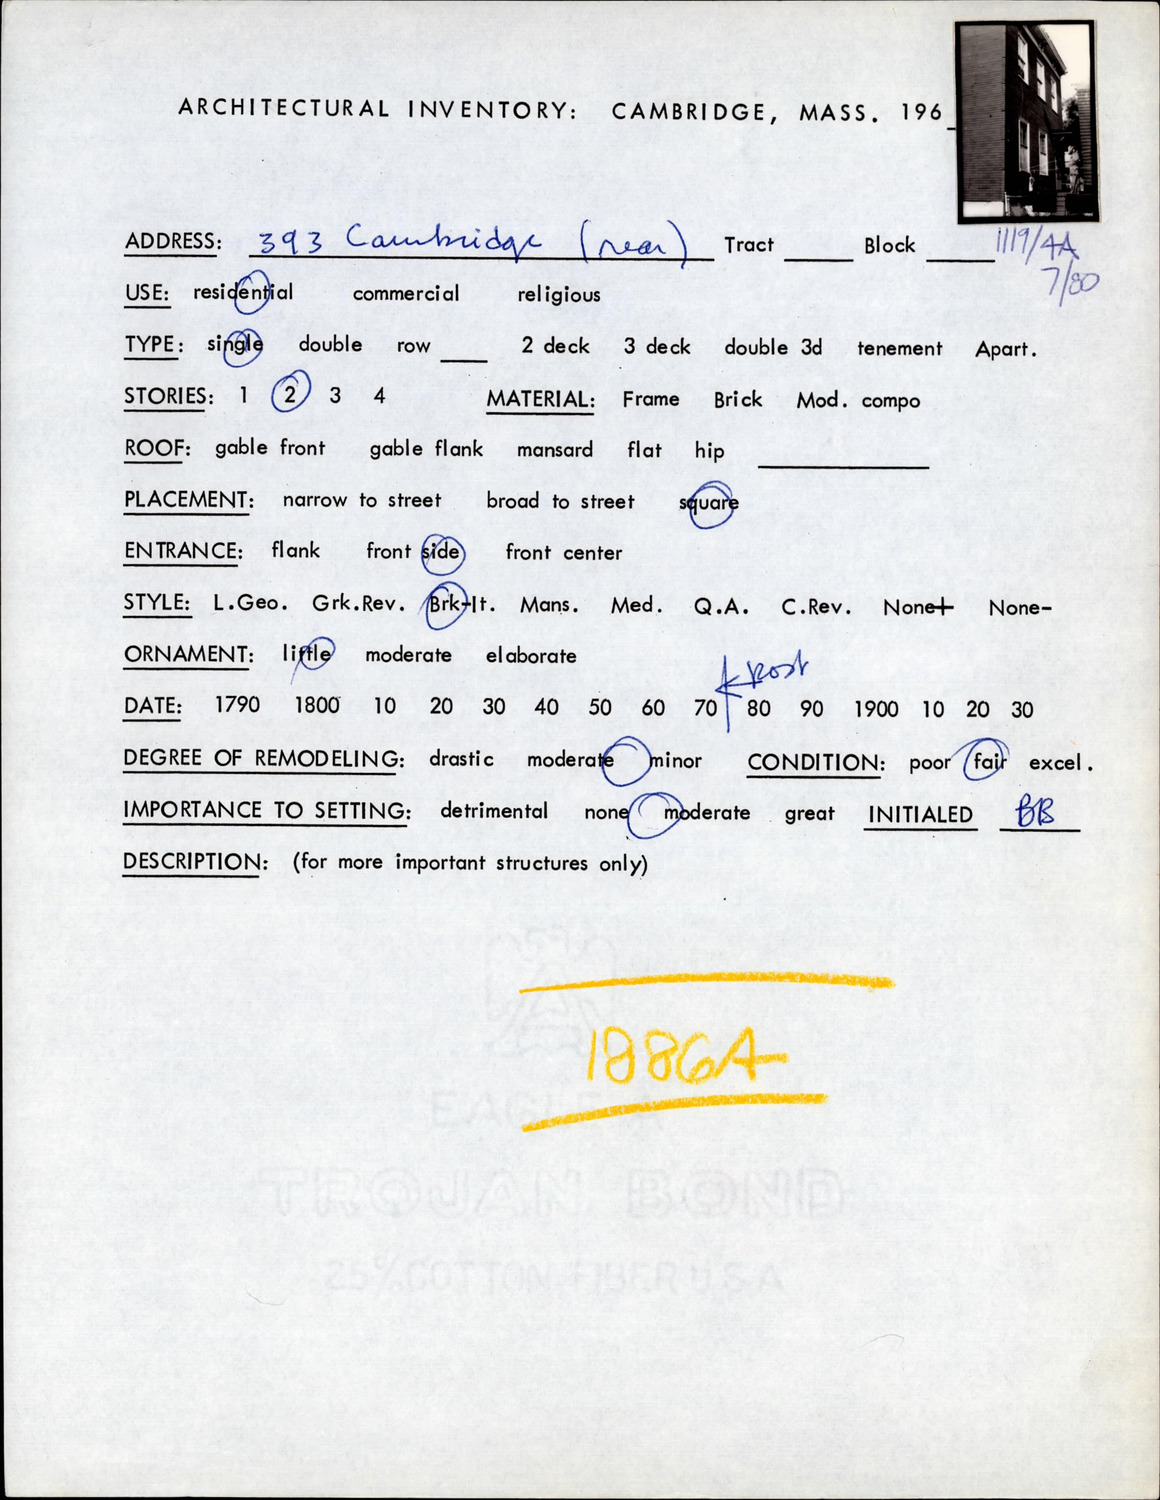 ARCHITECTURAL INVENTORY: CAMBRIDGE, MASS. 196_
ADDRESS: 393 Cambridge (rear) Tract ____ Block ____ 1119/4A
7/80
USE: residential commercial religious
TYPE: single double row ___ 2 deck 3 deck double 3d tenement Apart.
STORIES: 1 2 3 4 MATERIAL: Frame Brick Mod. compo
ROOF: gable front gable flank mansard flat hip ____
PLACEMENT: narrow to street broad to street square
ENTRANCE: flank front side front center
STYLE: L.Geo. Grk.Rev. Brk-It. Mans. Med. Q.A. C.Rev. None+ None-
ORNAMENT: little moderate elaborate
post
DATE: 1790 1800 10 20 30 40 50 60 70 80 90 1900 10 20 30
DEGREE OF REMODELING: drastic moderate minor CONDITION: poor fair excel.
IMPORTANCE TO SETTING: detrimental none moderate great INITIALED BB
DESCRIPTION: (for more important structures only)
1886A
EAGLE A
TROJAN BOND
25% COTTON FIBER U.S.A